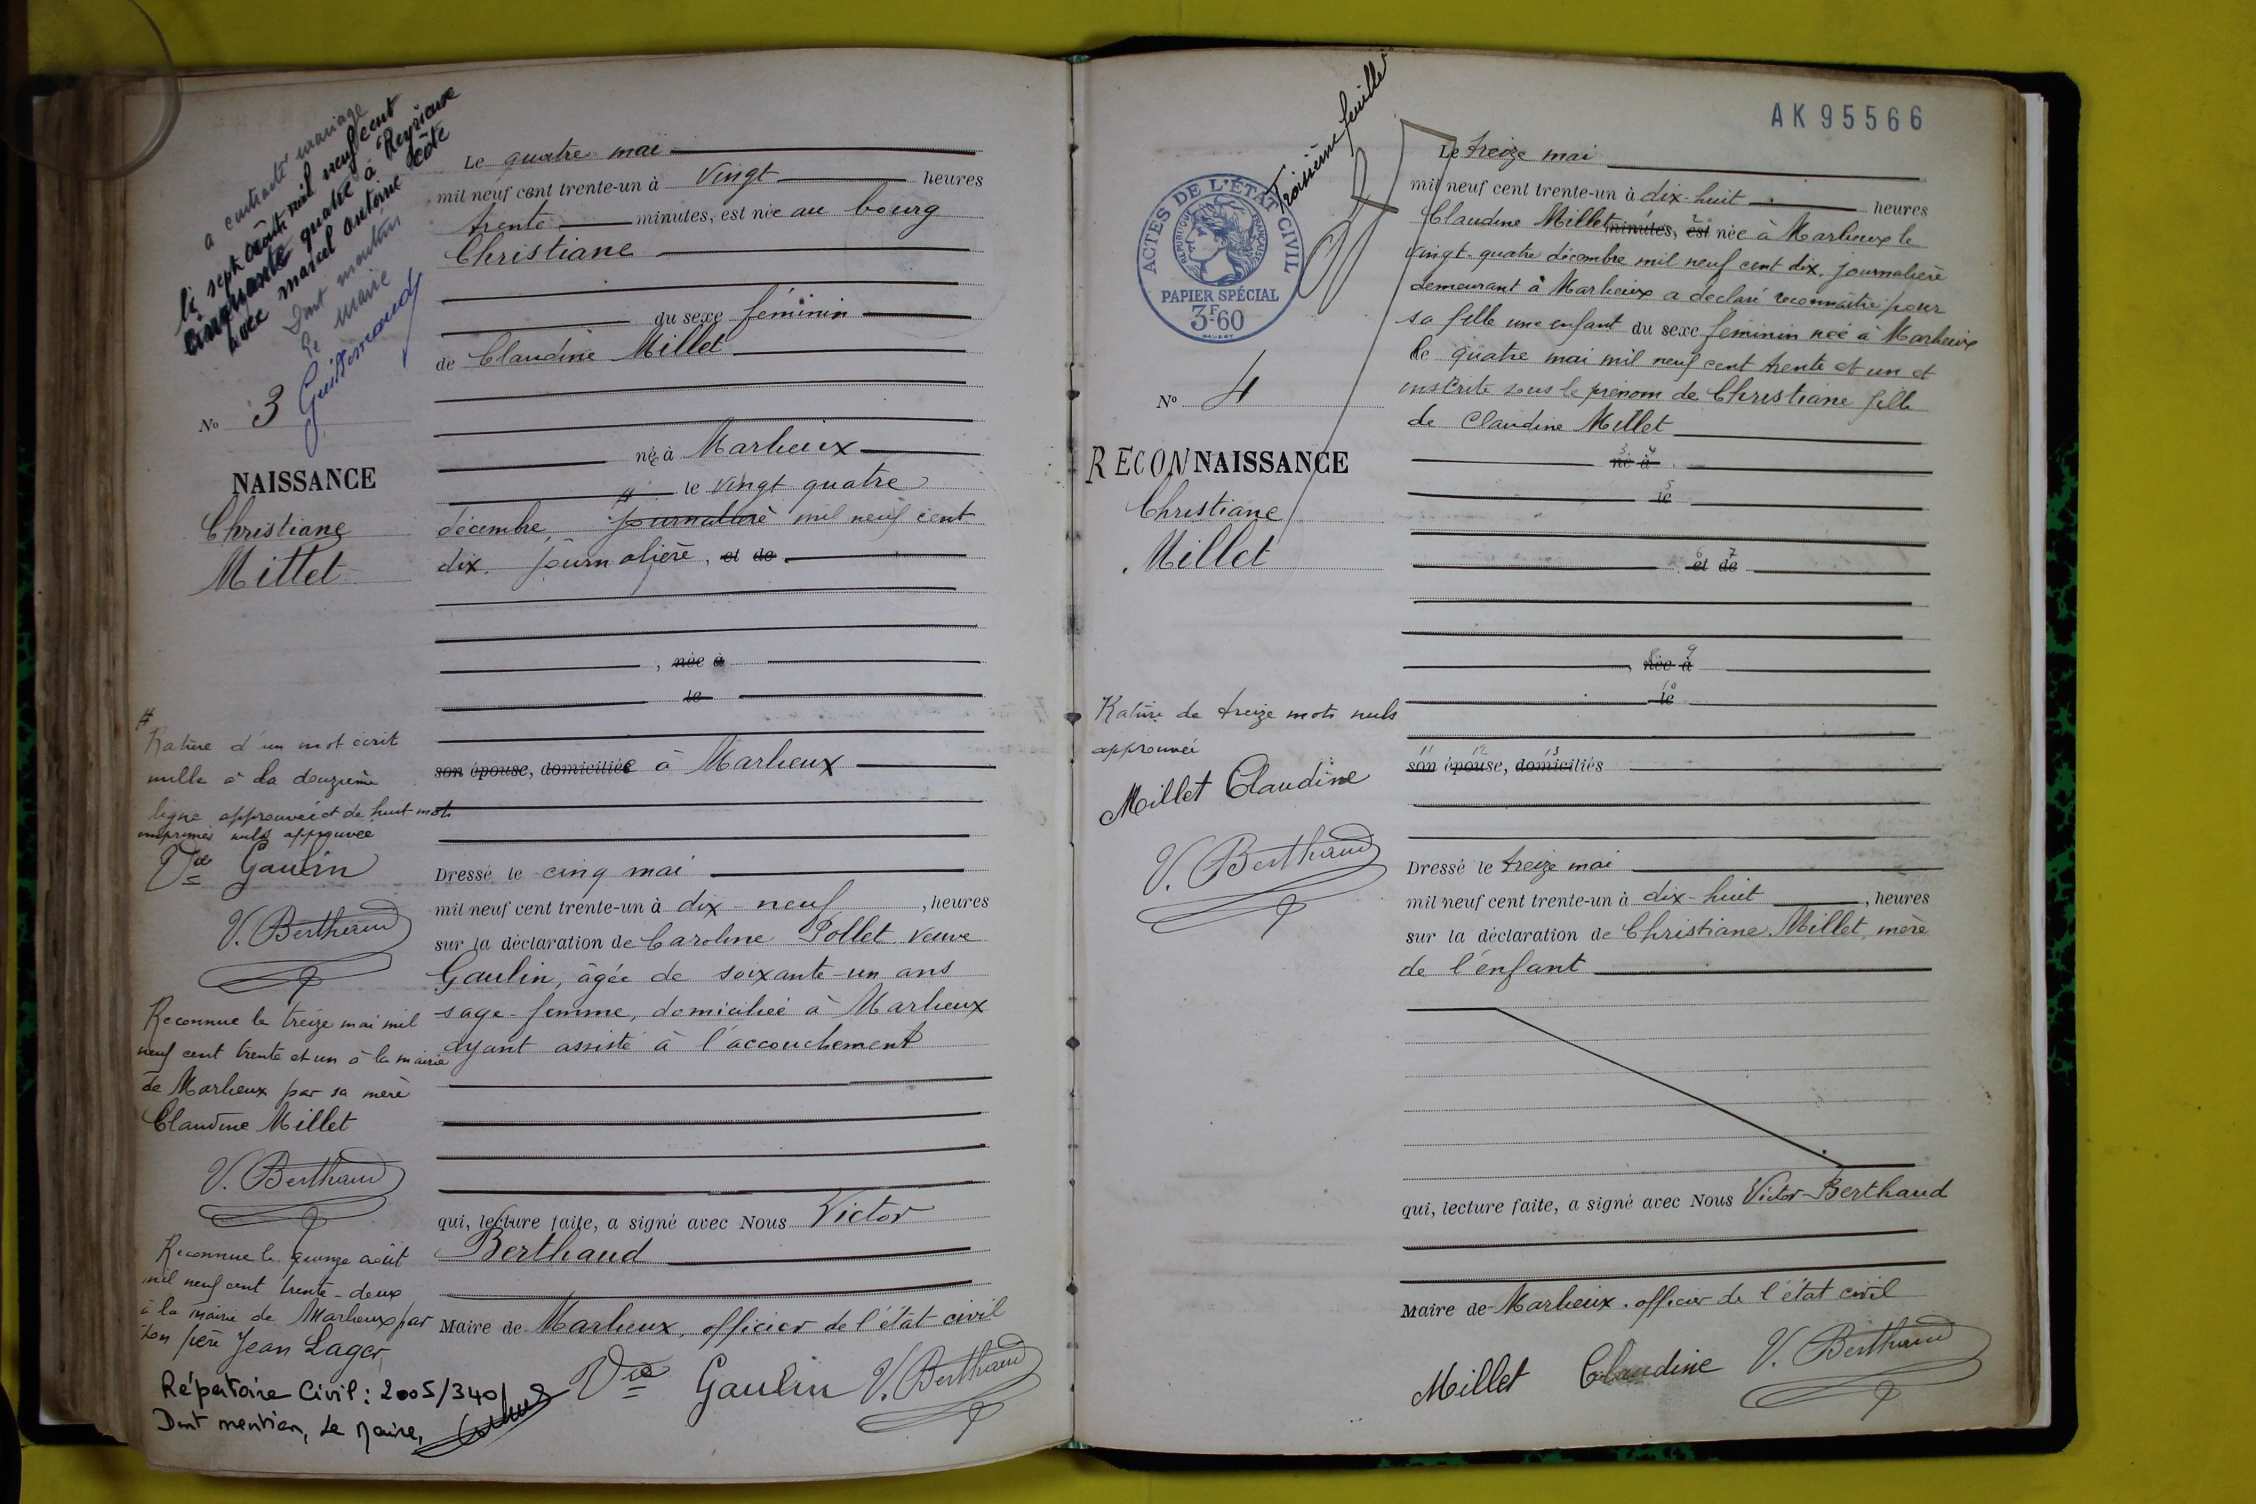 a contracté mariage
le sept août mil neuf cent
cinquante quatre à Reyrieux
avec Marcel Antoine Côte
Dont mention
Le Maire
Guillermond
No 3
NAISSANCE
Christiane
Millet
#
Rature d'un mot écrit
nulle à la douzième
ligne approuvée et de huit mots
imprimés nuls approuvée
Vve Gaulin
V. Berthaud
Reconnue le treize mai mil
neuf cent trente et un à la mairie
de Marlieux par sa mère
Claudine Millet
V. Berthaud
Reconnue le quinze août
mil neuf cent trente-deux
à la mairie de Marlieux par
son père Jean Lager
Répertoire Civil : 2005/340
Dont mention, Le Maire,
Le quatre mai
mil neuf cent trente-un à vingt heures
trente minutes, est née au bourg
Christiane
du sexe féminin
de Claudine Millet
née à Marlieux
# le vingt quatre
décembre journalière mil neuf cent
dix. journalière, et de
, née à
le
son épouse, domiciliée à Marlieux
Dressé le cinq mai
mil neuf cent trente-un à dix-neuf , heures
sur la déclaration de Caroline Pollet veuve
Gaulin, âgée de soixante-un ans
sage-femme, domiciliée à Marlieux
ayant assisté à l'accouchement
qui, lecture faite, a signé avec Nous Victor
Berthaud
Maire de Marlieux, officier de l'état civil
Vve Gaulin V. Berthaud
Troisième feuillet
AK 95566
ACTES DE L'ÉTAT CIVIL
RÉPUBLIQUE FRANÇAISE
PAPIER SPÉCIAL
3F60
No 4
RECONNAISSANCE
Christiane
Millet
Rature de treize mots nuls
approuvée
Millet Claudine
V. Berthaud
Le treize mai
mil neuf cent trente-un à dix-huit heures
Claudine Millet minutes, est née à Marlieux le
vingt-quatre décembre mil neuf cent dix, journalière
demeurant à Marlieux a déclaré reconnaître pour
sa fille une enfant du sexe féminin née à Marlieux
le quatre mai mil neuf cent trente et un et
inscrite sous le prénom de Christiane fille
de Claudine Millet
3 4
né à
5
le
6 7
et de
9
, née à
10
le
11 12 13
son épouse, domiciliés
Dressé le treize mai
mil neuf cent trente-un à dix-huit , heures
sur la déclaration de Christiane Millet, mère
de l'enfant
qui, lecture faite, a signé avec Nous Victor Berthaud
Maire de Marlieux, officier de l'état civil
Millet Claudine V. Berthaud